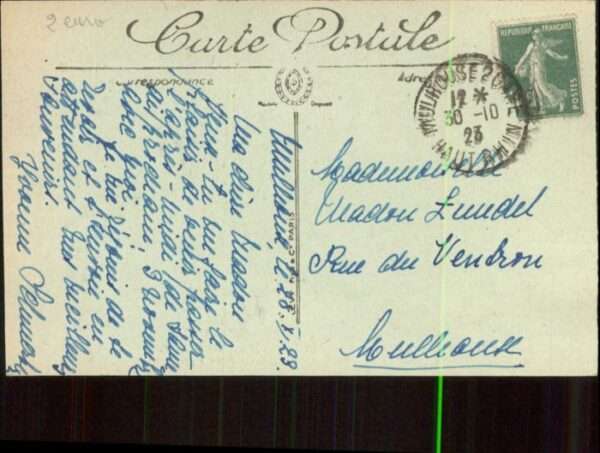 2 euro
Carte Postale
Correspondance
Adresse
RÉPUBLIQUE FRANÇAISE
POSTES
MULHOUSE 2 GARE
12 *
30 -10
23
HAUT-RHIN
Mademoiselle
Madou Zundel
Rue du Vendron
Mulhouse
PARIS
Mulhouse le 28. X. 23.
Ma chère Madou
Veux-tu me faire le
plaisir de venir passer
l'après-midi de samedi
prochain, 3 novembre
avec moi.
Je me réjouis de te
revoir et t'envoie en
attendant mes meilleurs
souvenirs.
Yvonne